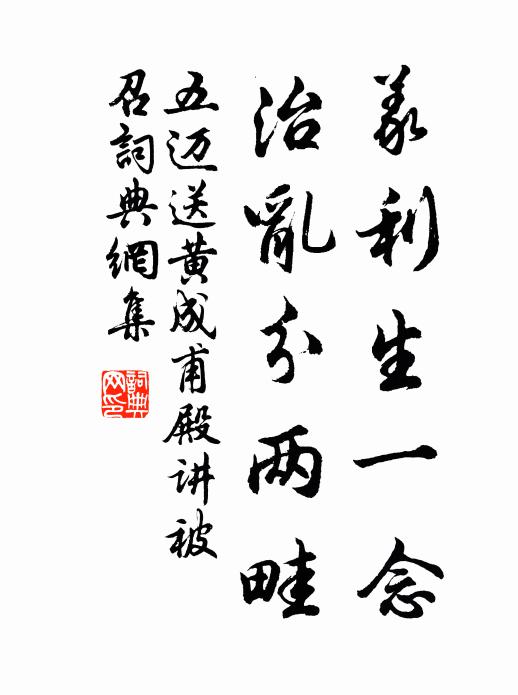 義利生一念
治亂分两畦
五迈送黄成甫殿讲被
召詞典網集
詞典网印